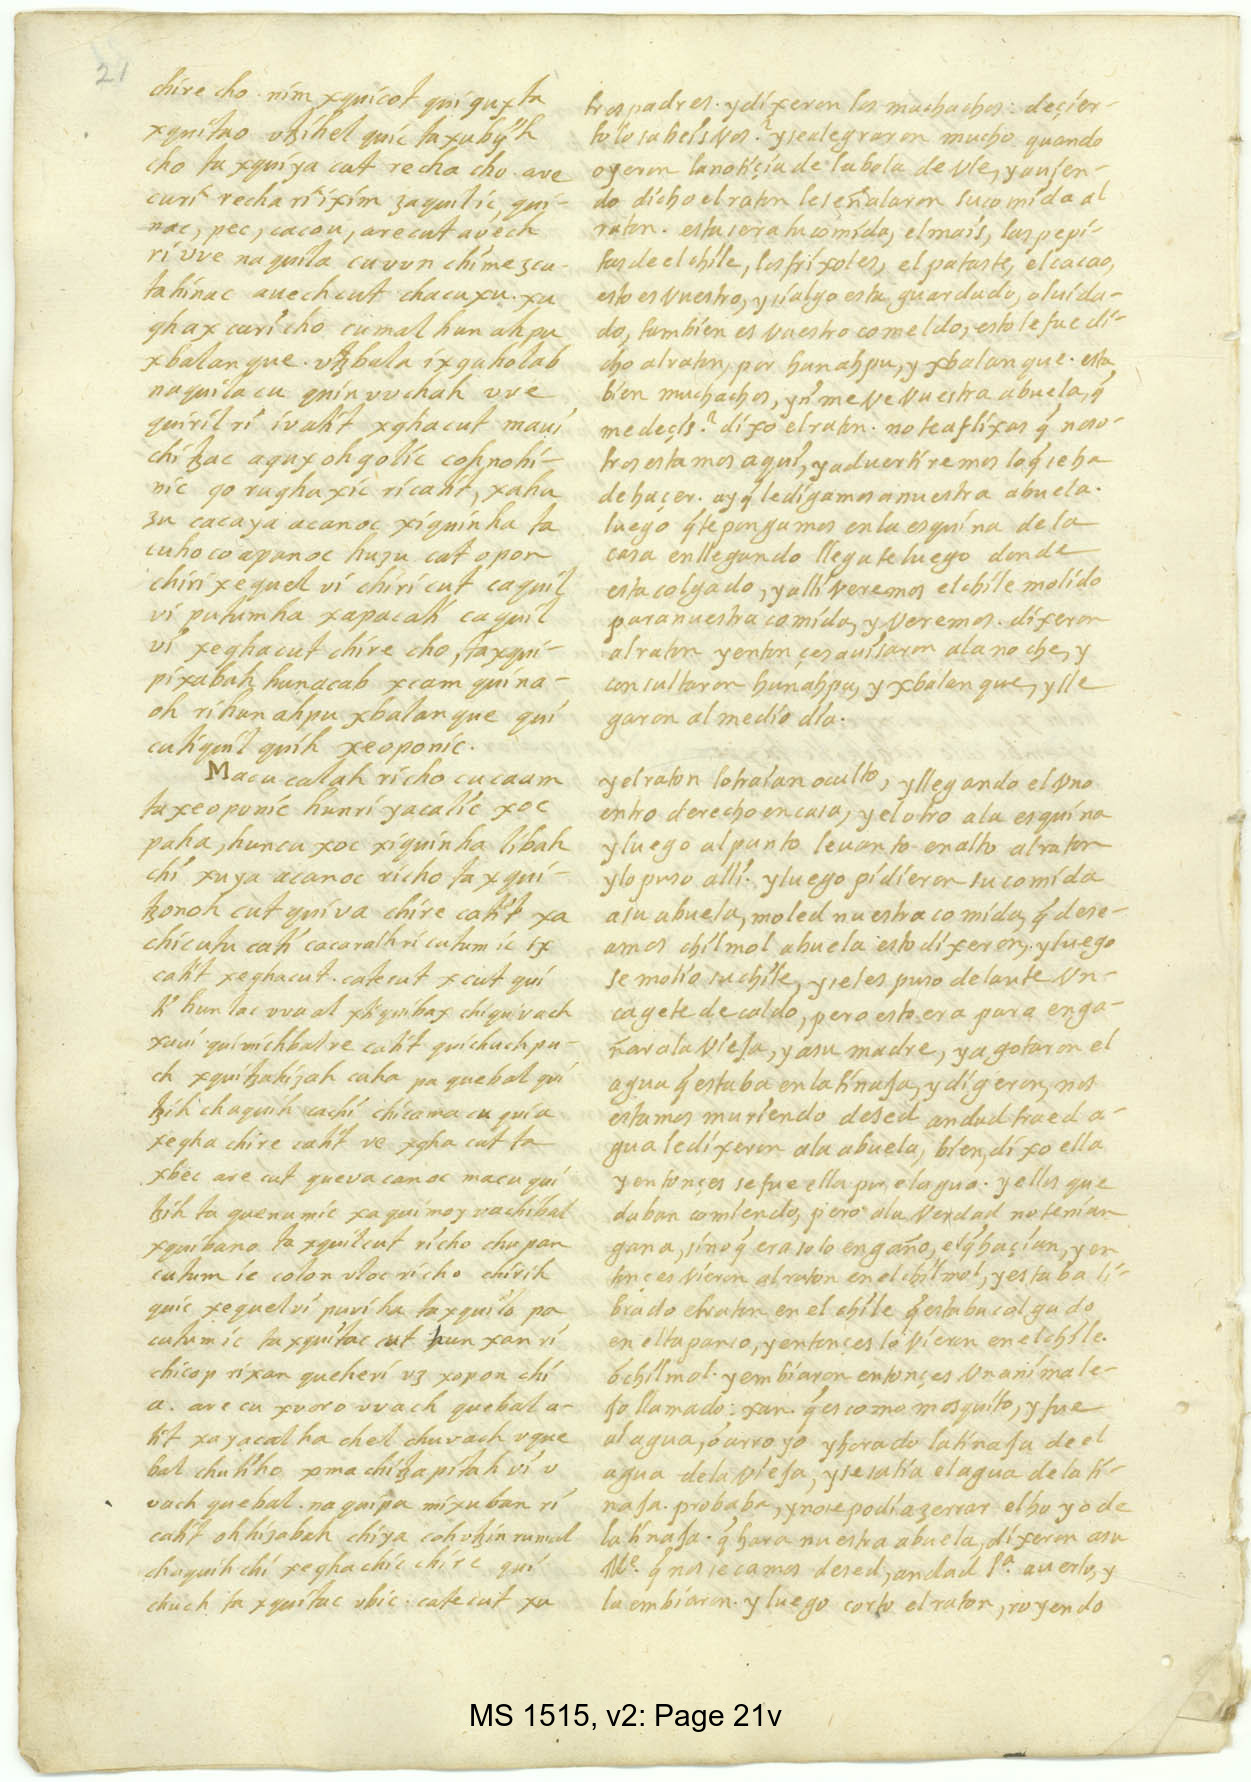 21
chire cho. nim xquicot qui qux ta
xquitao utzihel quic ta xubijh
cho ta xquiya cut recha cho. are
curi recha ri ixim zaquilic, qui-
nac, pec, cacou, are cut avech
ri vve naquila cuvun chimezcu-
tahinac auech cut chacuxu. xu
ghax curi cho cumal hun ahpu
xbalanque. utzbala ix qaholab
naquila cu quin vuchah vve
quiril ri ivatit xghacut maui
chi tzac aqux oh golic cohnohi-
nic qo rughaxic ricatit, xahu
zu cacaya acanoc xiquinha ta
cuhoco apanoc huzu cat opon
chiri xequel vi chiri cut caquil
vi putumha xapacati caquil
vi xeghacut chire cho, taxqui-
pixabah hunacab xcam quina-
oh ri hunahpu xbalanque qui
cutiquil quih xeoponic.
Macu calah richo cucaam
taxeoponic hunri yacalic xoc
paha, huncu xoc xiquinha libah
chi xuya acanoc richo ta xqui-
tzonoh cut quiva chire catit xa
chicutu cati cacaraih ri cutum ic ix
catit xeghacut. catecut xcut qui
ti hun lac vvaal xtiquibax chiquivach
xaui quimichbal re catit quichuch pu-
ch xquitzahizah caha pa quebal qui
tzih chaquih cachi chicama cu quia
xegha chire catit ve xgha cut ta
xbec are cut queva canoc macu qui
tzih ta quenumic xaquimoy vachibal
xquibano ta xquilcut richo chupan
cutum ic colon vloc richo chirih
quic xequel vi puvi ha taxquilo pa
cutumic ta xquitac cut hun xan ri
chicop rixan queheri uz xopon chi
a. are cu xvoro vvach quebal a-
tit xayacal ha chel chuvach vque
bal chutiho xmachitzapitah vi v
vach quebal. naquipa mixuban ri
catit ohhizabeh chiya cohutzin rumal
chaquih chi xeghachic chire qui
chuch ta xquitac vbic. catecut xu
tros padres. y dixeron los muchachos: de çier-
to lo sabeis vos.? y se alegraron mucho quando
oyeron la notiçia de la bola de vle, y auien-
do dicho el raton le señalaron su comida al
raton. esta sera tu comida, el mais, las pepi-
tas de el chile, los frixoles, el pataste, el cacao,
esto es vuestro, y si algo esta guardado, oluida-
do, tambien es vuestro comeldo, esto le fue di-
cho al raton, por hunahpu, y xbalanque. esta
bien muchachos, y si me ve vuestra abuela, q̃
me deçis.? dixo el raton. no te aflixas q̃ noso-
tros estamos aqui, y aduertiremos lo q̃ se ha
de haçer. ay q̃ le digamos a nuestra abuela.
luego q̃ te pongamos en la esquina de la
casa en llegando llegate luego donde
esta colgado, y alli veremos el chile molido
para nuestra comida, y veremos. dixeron
al raton y entonçes auisaron a la noche, y
consultaron hunahpu, y xbalanque, y lle
garon al medio dia.
y el raton lo traian oculto, y llegando el vno
entro derecho en casa, y el otro a la esquina
y luego al punto leuanto en alto al raton
y lo puso alli. y luego pidieron su comida
a su abuela, moled nuestra comida, q̃ dese-
amos chilmol abuela esto dixeron, y luego
se molio su chile, y se les puso delante vn
cagete de caldo, pero esto era para enga-
ñar a la vieja, y a su madre, y agotaron el
agua q̃ estaba en la tinaja, y digeron, nos
estamos muriendo de sed andad traed a-
gua le dixeron a la abuela, bien, dixo ella
y entonçes se fue ella por el agua. y ellos que
daban comiendo, pero a la verdad no tenian
gana, sino q̃ era solo engaño, el q̃ haçian, y en
tonces vieron al raton en el chilmol, y estaba li-
brado el raton en el chile q̃ estaba colgado
en el tapanco, y entonçes lo vieron en el chile.
o chilmol. y embiaron entonçes vn animale-
jo llamado: xan. q̃ es como mosquito, y fue
al agua, o arroyo y horado la tinaja de el
agua de la vieja, y se salia el agua de la ti-
naja. probaba, y no se podia zerrar el hoyo de
la tinaja. q̃ hara nuestra abuela, dixeron a su
Me. q̃ nos secamos de sed, andad sa. a uerlo, y
la embiaron. y luego corto el raton, royendo
MS 1515, v2: Page 21v